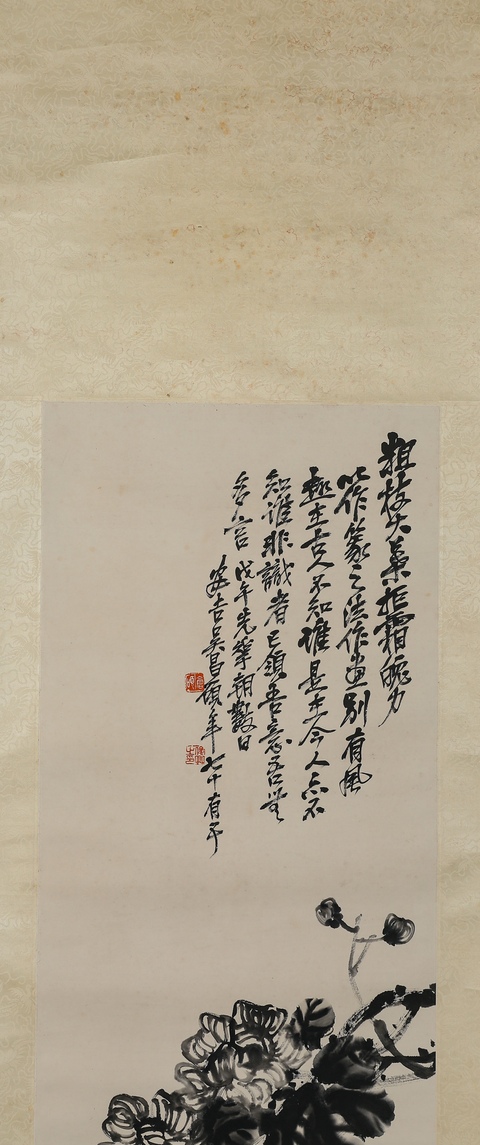 粗枝大葉拒霜魄力
以作篆之法作畫別有風
趣在古人不知誰是在今人亦不
知誰非識者已領吾意吾
多言 戊午先華朝數日
安吉吳昌碩年七十有五